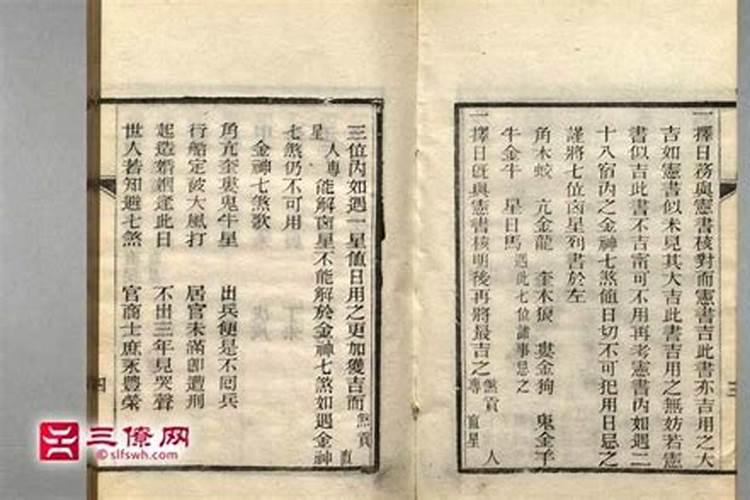 一擇日務與憲書核對而憲書吉此書亦吉用之大
吉如憲書似未見其大吉此書吉用之無妨若憲
書似吉此書不吉甯可不用再考憲書內如遇二
十八宿內之金神七煞值日切不可犯用日忌之
謹將七位凶星列書於左
角木蛟 亢金龍 奎木狼 婁金狗 鬼金羊
牛金牛 星日馬 遇此七位諸事忌之
一擇日旣與憲書核明後再將最吉之煞貢專直星人
三
三位內如遇一星值日用之更加獲吉而煞貢直
星人專能解凶星不能解於金神七煞如遇金神
七煞仍不可用
金神七煞歌
角亢奎婁鬼牛星 出兵便是不回兵
行船定被大風打 居官未滿卽遭刑
起造婚姻逢此日 不出三年見哭聲
世人若知避七煞 官商士庶永豐榮
四
三僚网
©slfswh.com